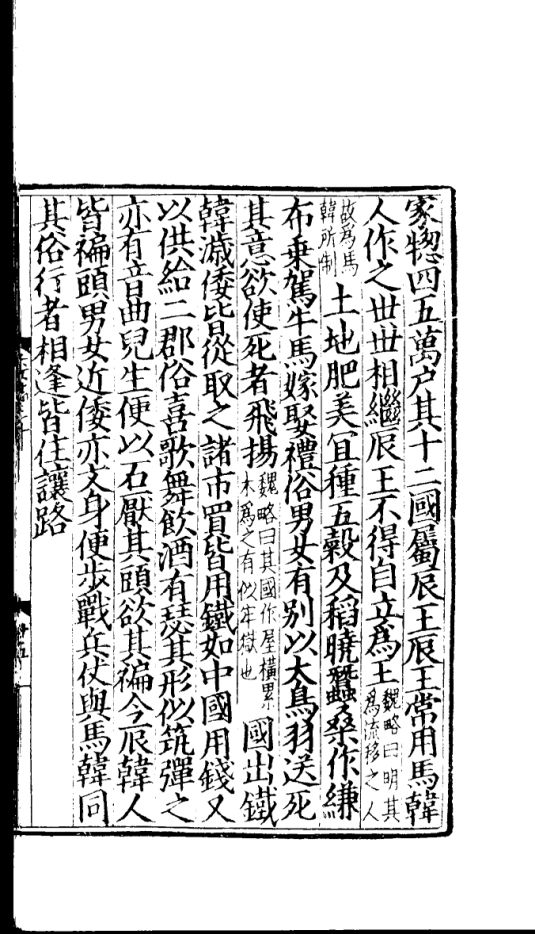 家惣四五萬户其十二國屬辰王辰王常用馬韓
人作之世世相繼辰王不得自立爲王魏略曰明其爲流移之人
故爲馬韓所制土地肥美冝種五榖及稻曉蠶桑作縑
布乗駕牛馬嫁娶禮俗男女有别以大鳥羽送死
其意欲使死者飛揚魏略曰其國作屋橫累木爲之有似牢獄也國出鐵
韓濊倭皆從取之諸市買皆用鐵如中國用錢又
以供給二郡俗喜歌舞飲酒有瑟其形似筑彈之
亦有音曲兒生便以石厭其頭欲其褊今辰韓人
皆褊頭男女近倭亦文身便步戰兵仗與馬韓同
其俗行者相逢皆住讓路